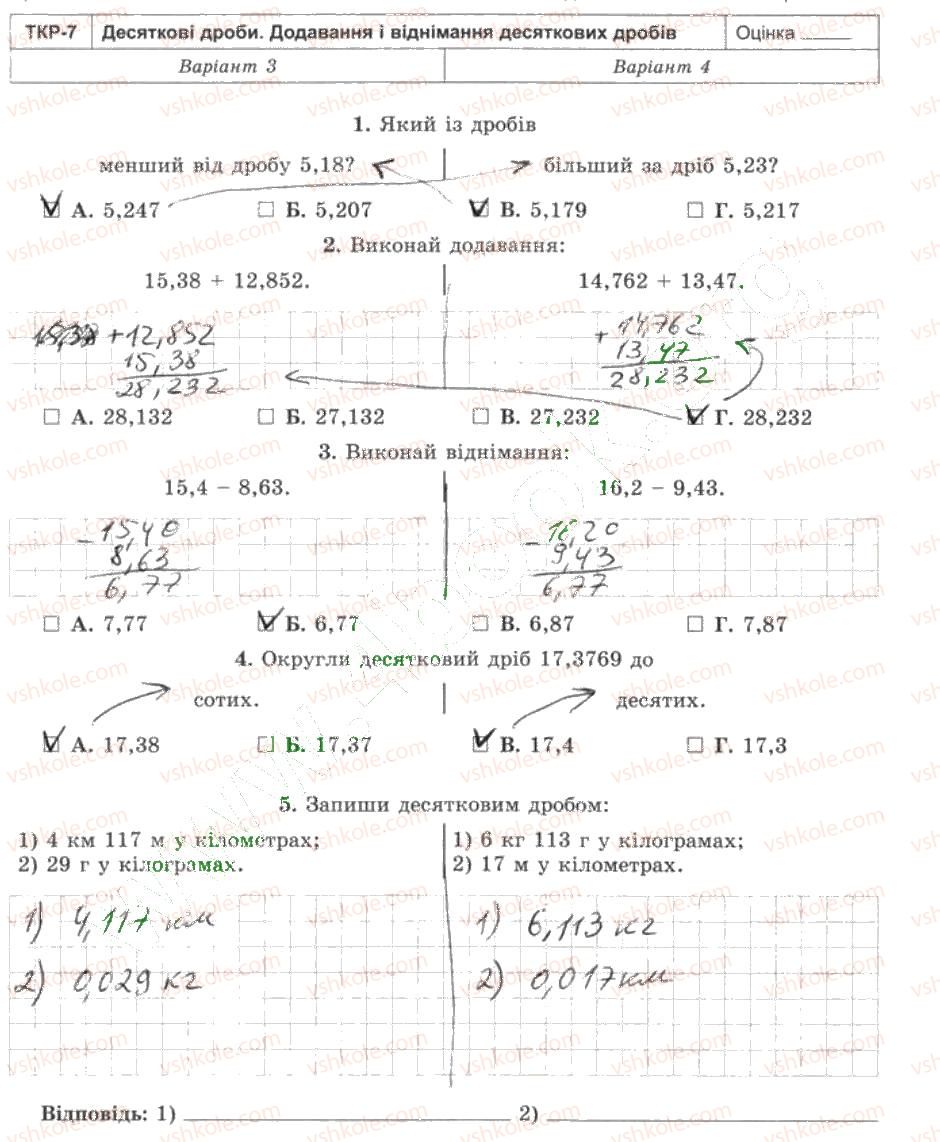 ТКР-7 Десяткові дроби. Додавання і віднімання десяткових дробів Оцінка
Варіант 3 Варіант 4
1. Який із дробів
менший від дробу 5,18? більший за дріб 5,23?
А. 5,247 Б. 5,207 В. 5,179 Г. 5,217
2. Виконай додавання:
15,38 + 12,852. 14,762 + 13,47.
+12,852 + 14,762
15,38 13,47
28,232 28,232
А. 28,132 Б. 27,132 В. 27,232 Г. 28,232
3. Виконай віднімання:
15,4 − 8,63. 16,2 − 9,43.
− 15,40 − 16,20
8,63 9,43
6,77 6,77
А. 7,77 Б. 6,77 В. 6,87 Г. 7,87
4. Округли десятковий дріб 17,3769 до
сотих. десятих.
А. 17,38 Б. 17,37 В. 17,4 Г. 17,3
5. Запиши десятковим дробом:
1) 4 км 117 м у кілометрах; 1) 6 кг 113 г у кілограмах;
2) 29 г у кілограмах. 2) 17 м у кілометрах.
1) 4,117 км 1) 6,113 кг
2) 0,029 кг 2) 0,017 км
Відповідь: 1) 2)